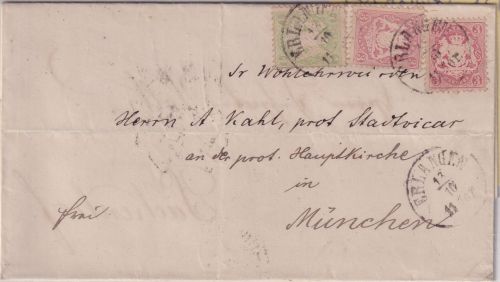 ERLANGEN
ERLANGEN
Sr Wohlehrwürden
Herrn A. Kahl, prot Stadtvicar
an der prot. Hauptkirche
in
München
frei
ERLANGEN
13
10